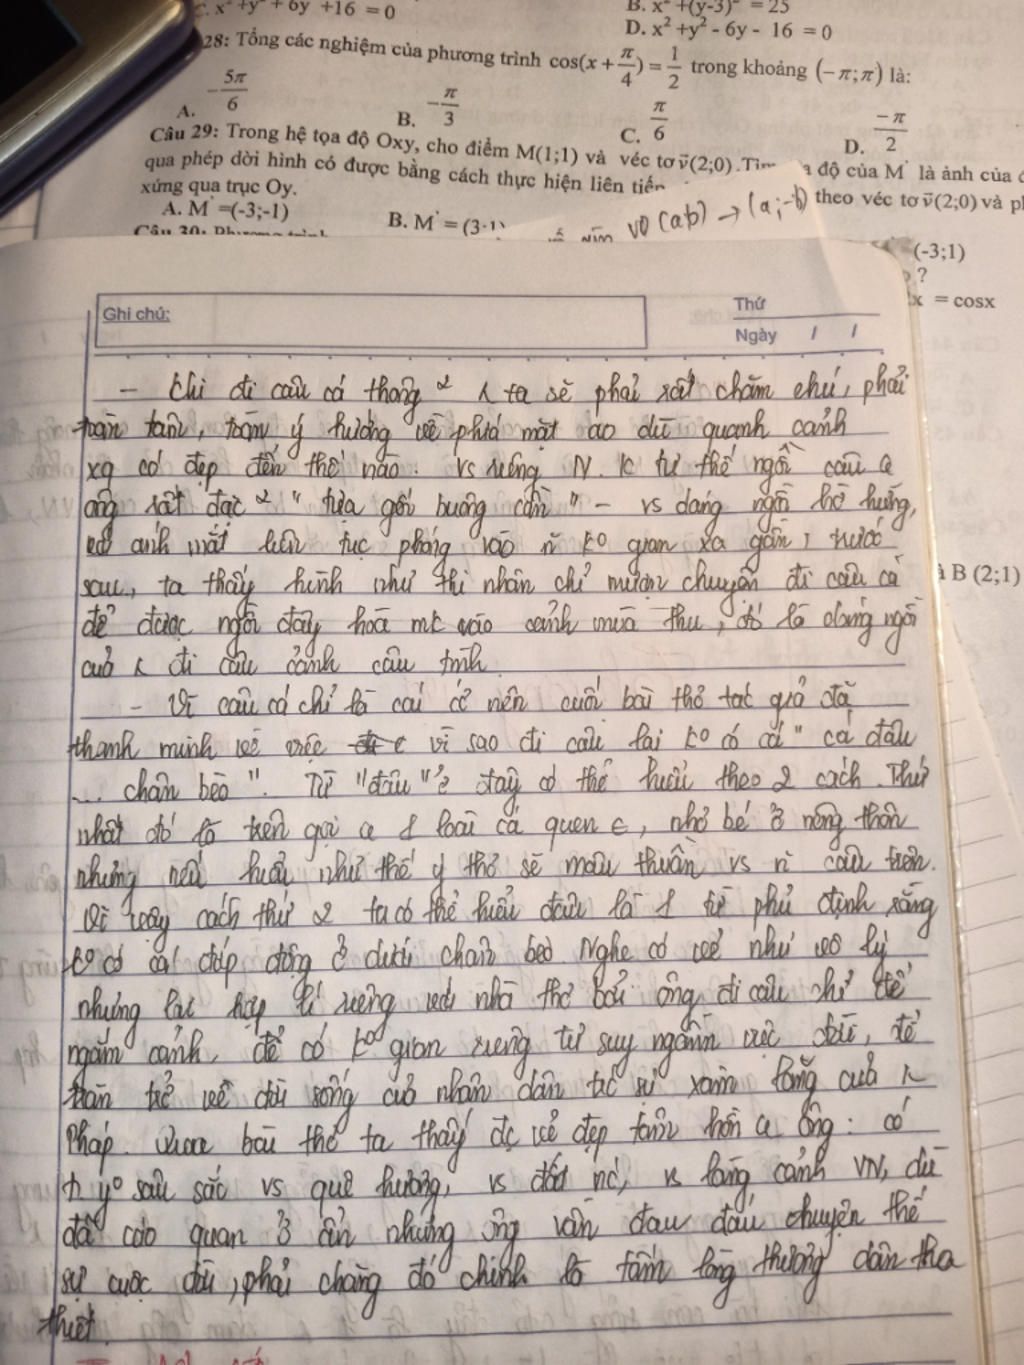 C. x² + y² + 6y + 16 = 0
B. x² + (y-3)² = 25
D. x² + y² - 6y - 16 = 0
28: Tổng các nghiệm của phương trình cos(x + π/4) = 1/2 trong khoảng (-π; π) là:
A. -5π/6
B. -π/3
C. π/6
D. -π/2
Câu 29: Trong hệ tọa độ Oxy, cho điểm M(1;1) và véc tơ v(2;0). độ của M' là ảnh của
qua phép dời hình có được bằng cách thực hiện liên tiến theo véc tơ v(2;0) và
xứng qua trục Oy.
A. M' =(-3;-1)
B. M' = (3;1)
(-3;1)
VO (a;b) → (a;-b)
?
x = cosx
B (2;1)
Ghi chú:
Thứ
Ngày / /
- Khi đi câu cá thông ² ta sẽ phải rất chăm chú, phải
toàn tâm, toàn ý hướng về phía mặt ao dù quanh cảnh
xq có đẹp đến thế nào. vs riêng N.K tư thế ngồi câu c̉
ông rất đặc ² " tựa gối buông cần " - vs dáng ngồi hờ hững,
ánh mắt liên tục phóng vào ~ kº gian xa gần, trước
sau, ta thấy hình như thi nhân chỉ mượn chuyện đi câu cá
để được ngồi đây hoà mk vào cảnh mùa thu, đó là dáng ngồi
của đi câu cảnh câu tình.
- Vì câu cá chỉ là cái cớ nên cuối bài thơ tác giả đã
thanh minh về việc vì sao đi câu lại kº có cá " cá đâu
... chân bèo ". Từ "đâu" ở đây có thể hiểu theo 2 cách. Thứ
nhất đó là tên gọi 1 loài cá quen, nhỏ bé ở nông thôn
nhưng nếu hiểu như thế ý thơ sẽ mâu thuẫn vs câu trên.
Vì vậy cách thứ 2 ta có thể hiểu đâu là 1 từ phủ định rằng
kº có cá đớp động ở dưới chân bèo. Nghe có vẻ như vô lý
nhưng lại hợp lí riêng với nhà thơ bởi ông đi câu chỉ để
ngắm cảnh, để có kº gian riêng tư suy ngẫm việc đời, để
trăn trở về đời sống của nhân dân trc sự xâm lăng của
Pháp. Qua bài thơ ta thấy đc vẻ đẹp tâm hồn ông: có
t yº sâu sắc vs quê hương, vs đất nc, vs làng cảnh VN, dù
đã cáo quan ở ẩn nhưng ông vẫn đau đáu chuyện thế
sự cuộc đời, phải chăng đó chính là tấm lòng thương dân tha
thiết.